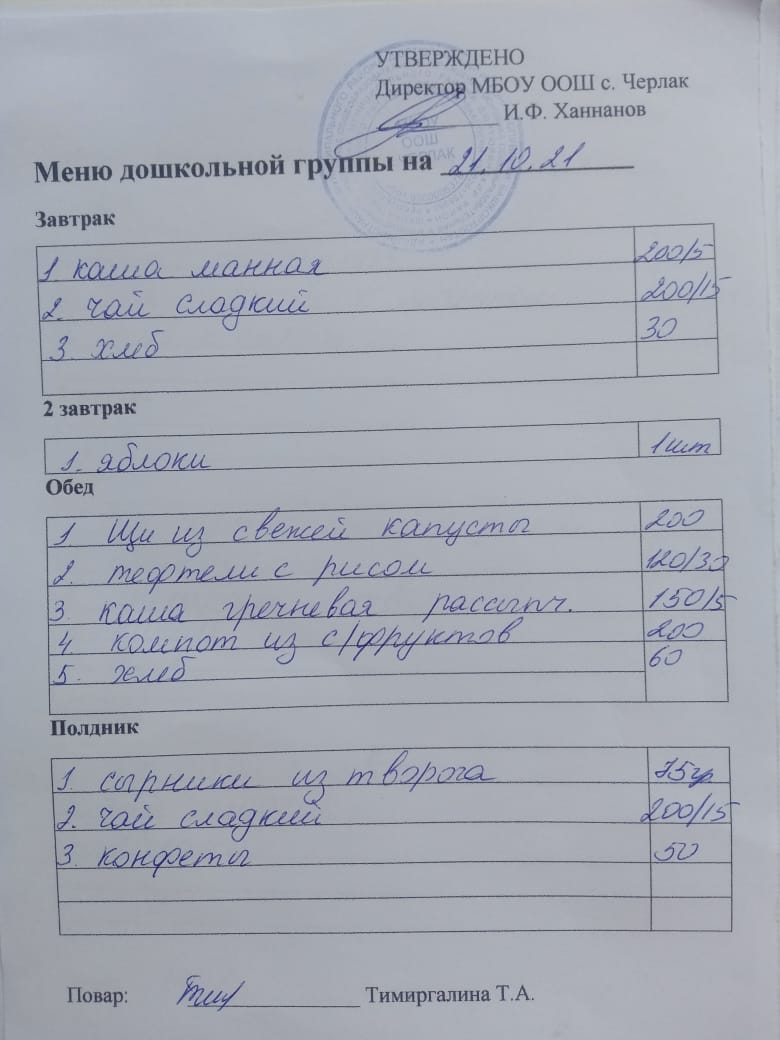 УТВЕРЖДЕНО
Директор МБОУ ООШ с. Черлак
И.Ф. Ханнанов
ООШ
ЧЕРЛАК
Меню дошкольной группы на 21.10.21
Завтрак
1 каша манная 200/5
2. чай сладкий 200/15
3. хлеб 30
2 завтрак
1. яблоки 1шт
Обед
1. Щи из свежей капусты 200
2. тефтели с рисом 120/30
3 каша гречневая рассыпч. 150/5
4. компот из с/фруктов 200
5. хлеб 60
Полдник
1. сырники из творога 75гр
2. чай сладкий 200/15
3. конфеты 50
Повар: Тимиргалина Т.А.